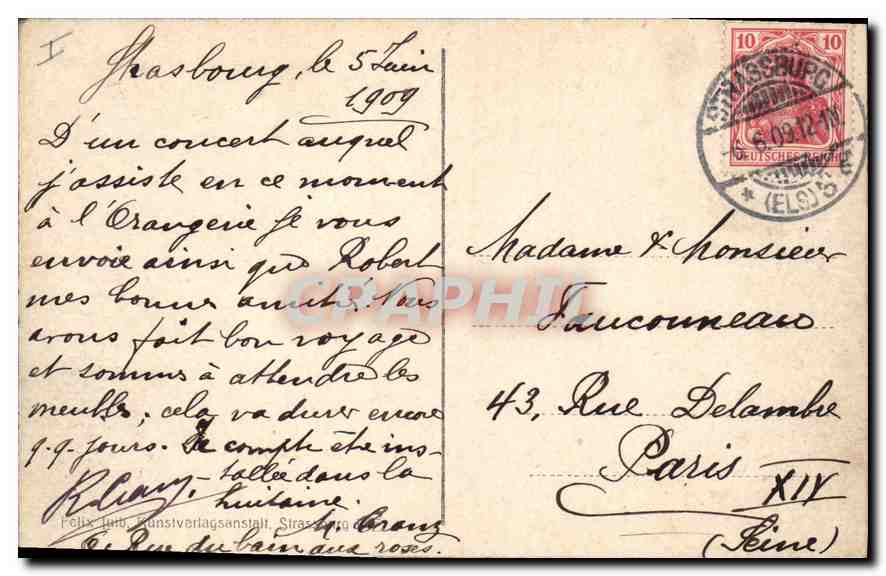 I
Strasbourg, le 5 Juin
1909
D'un concert auquel
j'assiste en ce moment
à l'Orangerie je vous
envoie ainsi que Robert
mes bonnes amitiés. Nous
avons fait bon voyage
et sommes à attendre les
meubles; cela va durer encore
q.q. jours. Je compte être ins-
tallée dans la
huitaine.
M. Cranz
6, Rue du bain aux roses.
Felix Luib, Kunstverlagsanstalt, Strassburg
10 10
DEUTSCHES REICH
STRASSBURG
6.6.09.12-1N
* (ELS) 5
Madame & Monsieur
Fauconneau
43, Rue Delambre
Paris
XIV
(Seine)
CRAPHIL